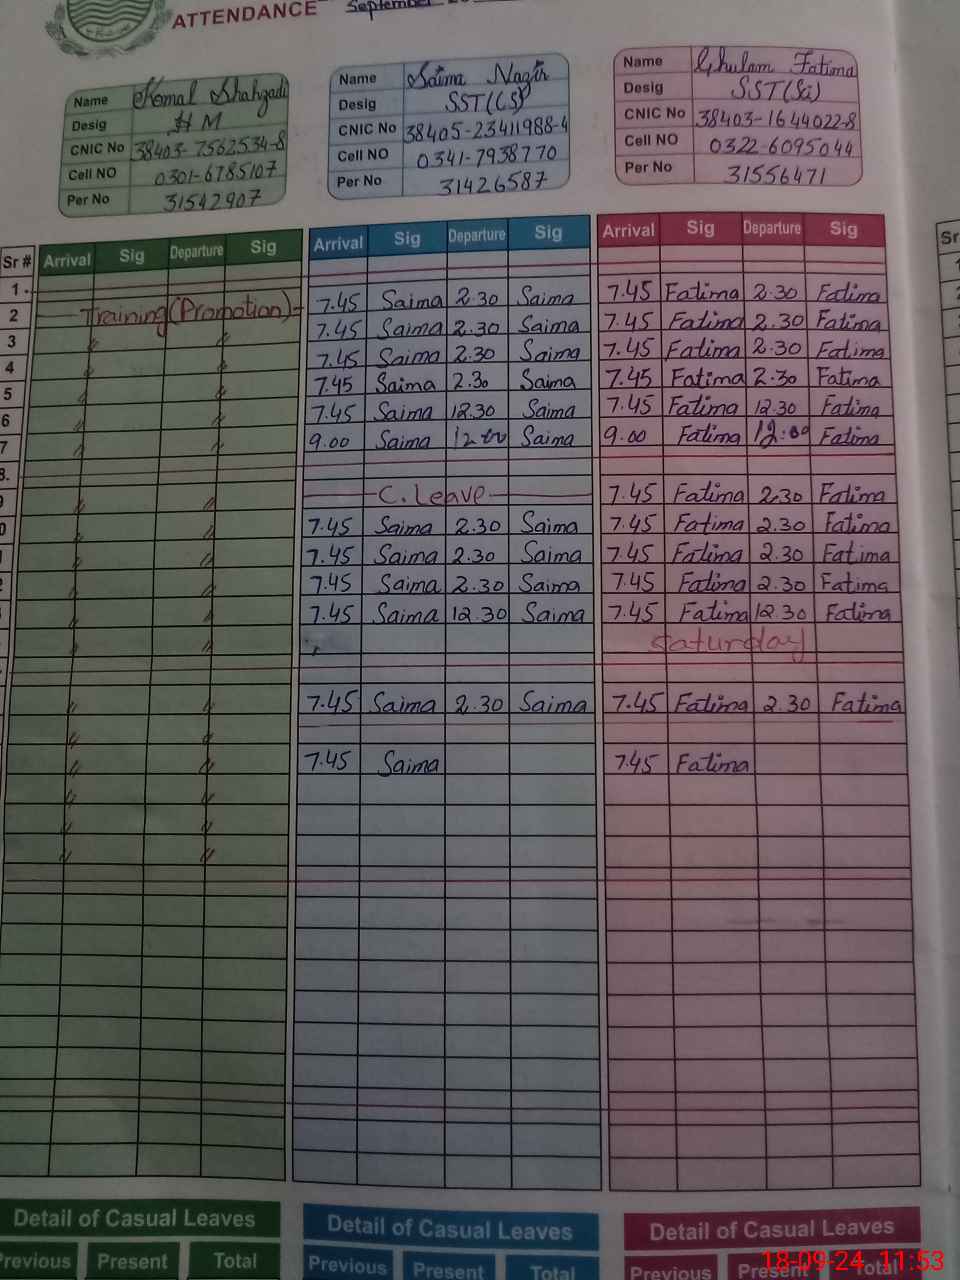 ATTENDANCE September
Name Komal Shahzadi
Desig HM
CNIC No 38403-7562534-8
Cell NO 0301-6785107
Per No 31542907
Name Saima Nazir
Desig SST(CS)
CNIC No 38405-23411988-4
Cell NO 0341-7938770
Per No 31426587
Name Ghulam Fatima
Desig SST(Sci)
CNIC No 38403-1644022-8
Cell NO 0322-6095044
Per No 31556471
Sr # Arrival Sig Departure Sig Arrival Sig Departure Sig Arrival Sig Departure Sig Sr
1
2 Training (Promotion) 7.45 Saima 2.30 Saima 7.45 Fatima 2.30 Fatima
3 〃 〃 7.45 Saima 2.30 Saima 7.45 Fatima 2.30 Fatima
4 〃 〃 7.45 Saima 2.30 Saima 7.45 Fatima 2.30 Fatima
5 〃 〃 7.45 Saima 2.30 Saima 7.45 Fatima 2.30 Fatima
6 〃 〃 7.45 Saima 12.30 Saima 7.45 Fatima 12.30 Fatima
7 〃 〃 9.00 Saima 12.00 Saima 9.00 Fatima 12.00 Fatima
8.
〃 〃 C.Leave 7.45 Fatima 2.30 Fatima
0 〃 〃 7.45 Saima 2.30 Saima 7.45 Fatima 2.30 Fatima
〃 〃 7.45 Saima 2.30 Saima 7.45 Fatima 2.30 Fatima
〃 〃 7.45 Saima 2.30 Saima 7.45 Fatima 2.30 Fatima
〃 〃 7.45 Saima 12.30 Saima 7.45 Fatima 12.30 Fatima
〃 〃 Saturday
〃 〃 7.45 Saima 2.30 Saima 7.45 Fatima 2.30 Fatima
〃 〃
〃 〃 7.45 Saima 7.45 Fatima
〃 〃
〃 〃
〃 〃
Detail of Casual Leaves Detail of Casual Leaves Detail of Casual Leaves
Previous Present Total Previous Present Total Previous Present Total
18-09-24 11:53